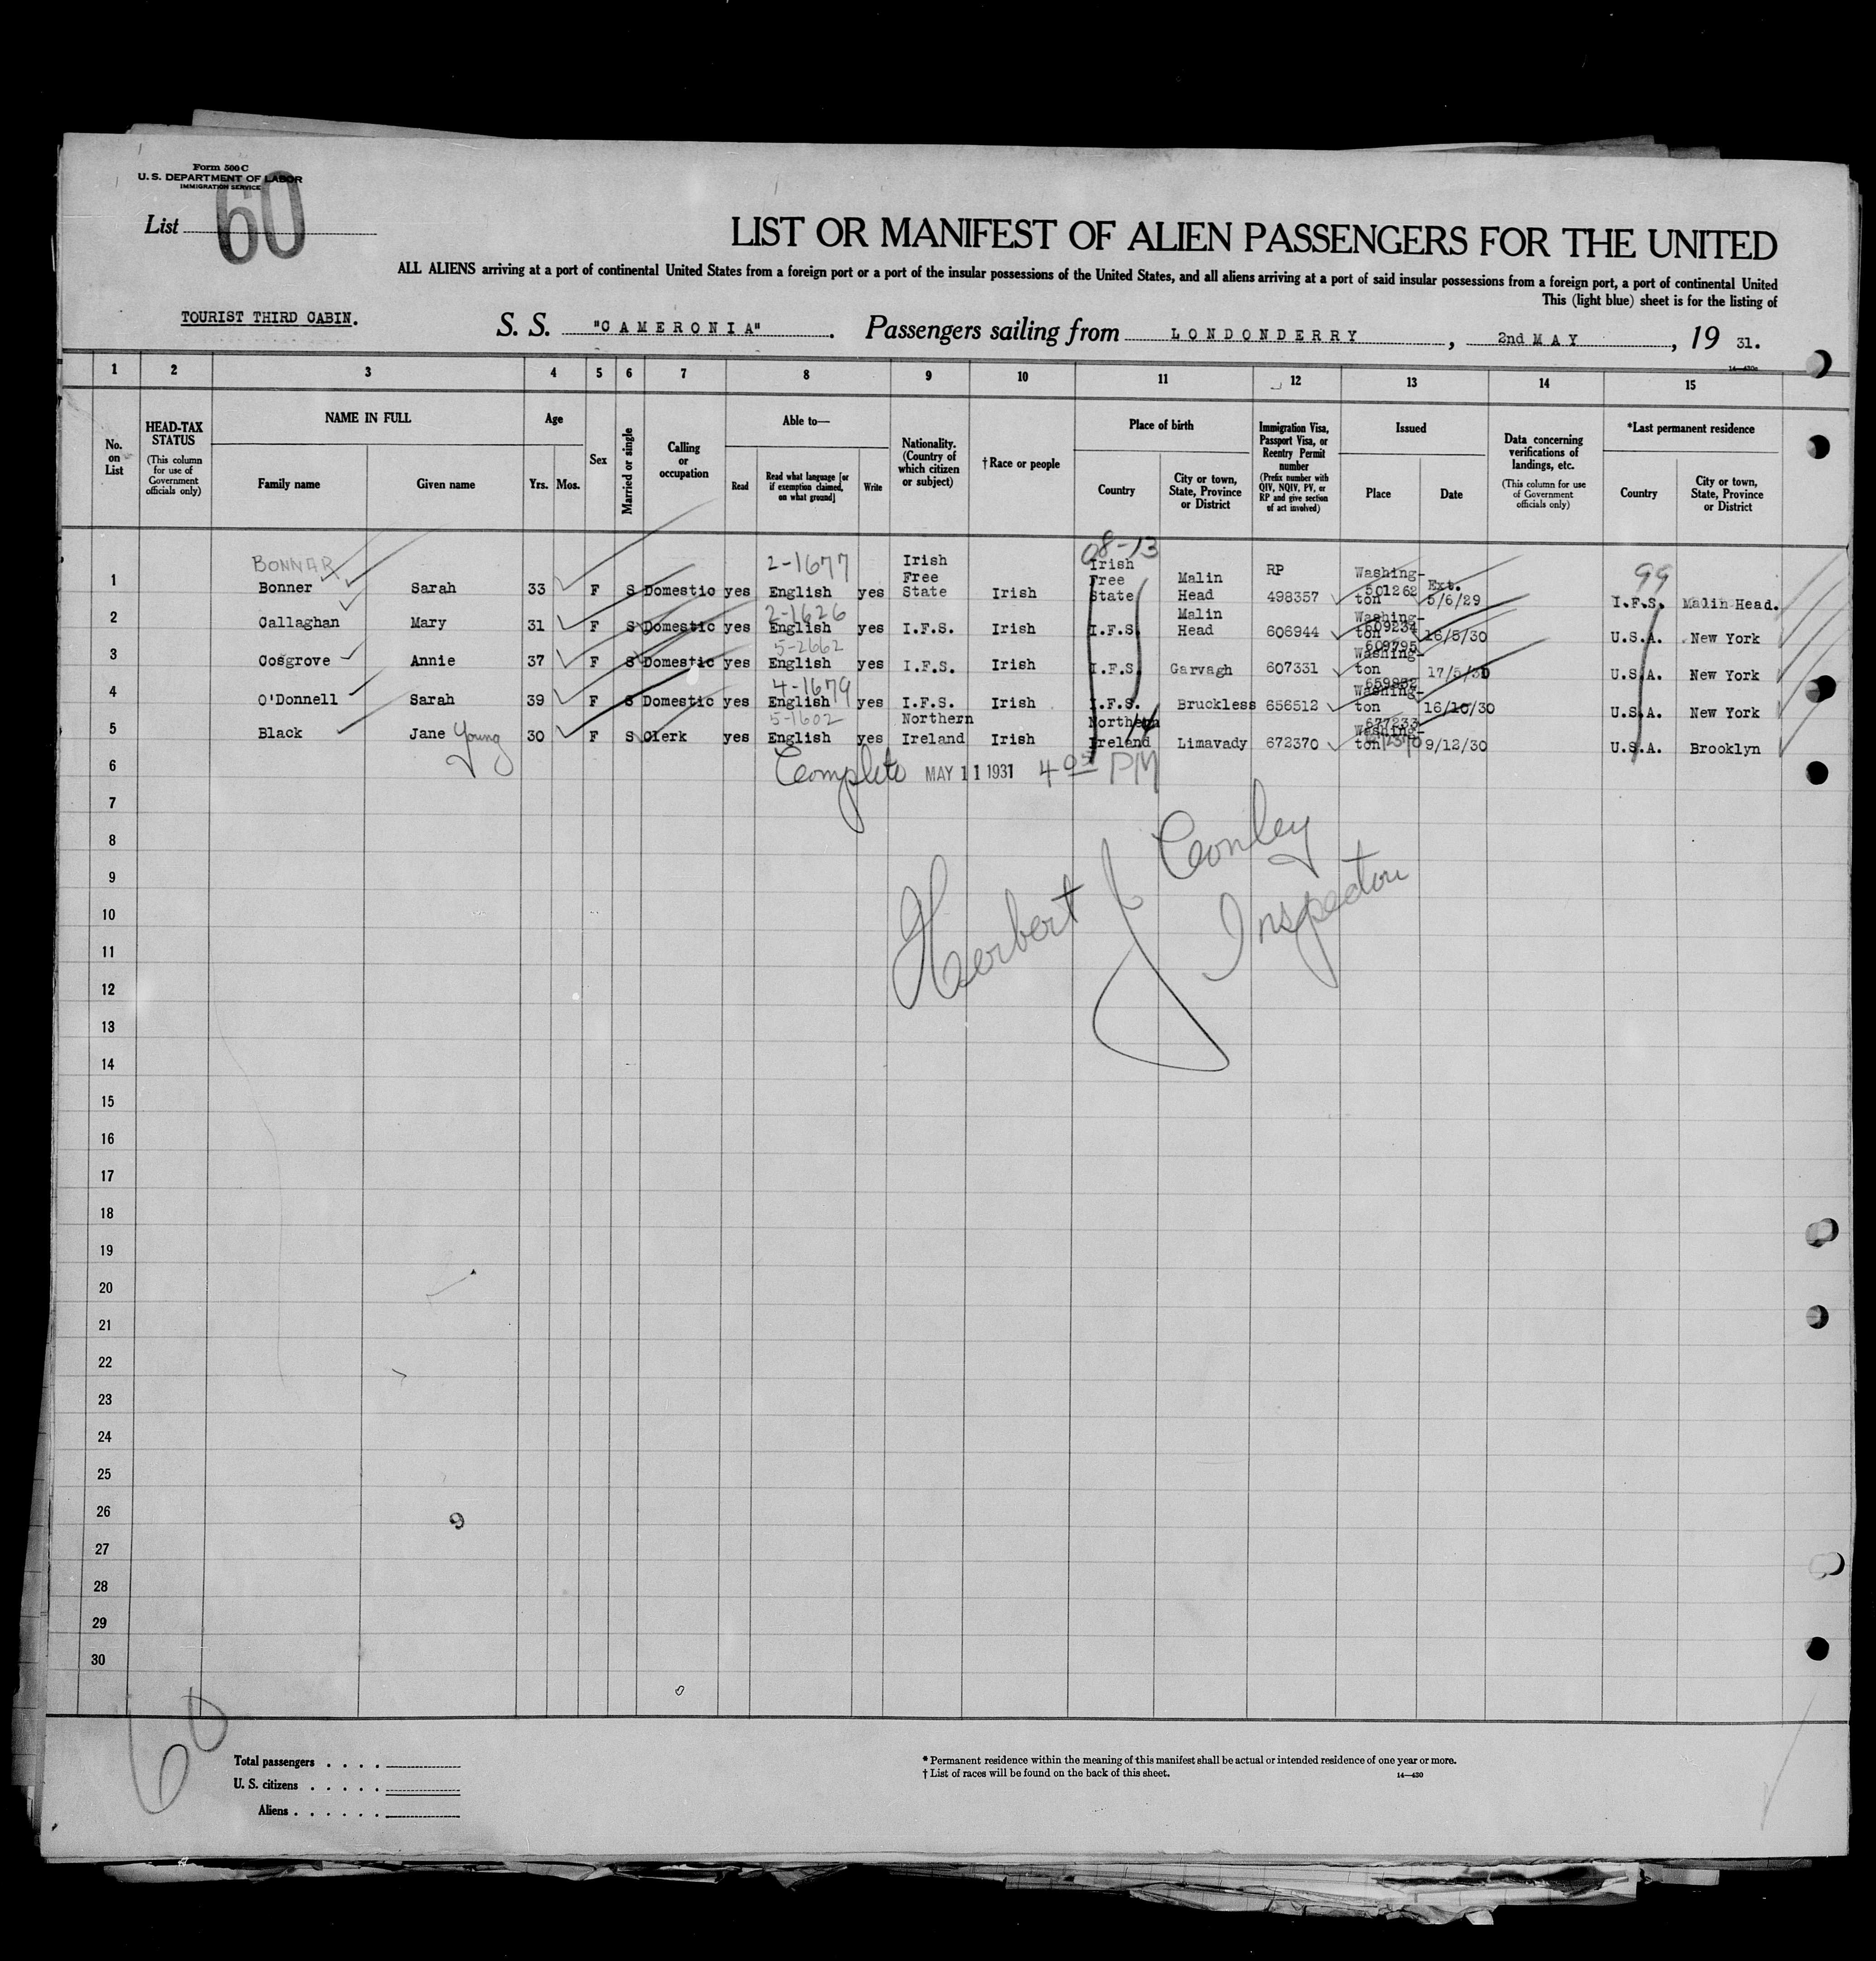 Form 500 C
U. S. DEPARTMENT OF LABOR
IMMIGRATION SERVICE
List 60
LIST OR MANIFEST OF ALIEN PASSENGERS FOR THE UNITED
ALL ALIENS arriving at a port of continental United States from a foreign port or a port of the insular possessions of the United States, and all aliens arriving at a port of said insular possessions from a foreign port, a port of continental United
This (light blue) sheet is for the listing of
TOURIST THIRD CABIN. S. S. "CAMERONIA". Passengers sailing from LONDONDERRY, 2nd MAY, 19 31.
14—430a
1 2 3 4 5 6 7 8 9 10 11 12 13 14 15
No. on List
HEAD-TAX STATUS (This column for use of Government officials only)
NAME IN FULL
Family name Given name
Age
Yrs. Mos.
Sex
Married or single
Calling or occupation
Able to—
Read Read what language [or if exemption claimed, on what ground] Write
Nationality. (Country of which citizen or subject)
†Race or people
Place of birth
Country City or town, State, Province or District
Immigration Visa, Passport Visa, or Reentry Permit number (Prefix number with QIV, NQIV, PV, or RP and give section of act involved)
Issued
Place Date
Data concerning verifications of landings, etc. (This column for use of Government officials only)
*Last permanent residence
Country City or town, State, Province or District
BONNAR 2-1677 08-13 99
1 Bonner Sarah 33 F S Domestic yes English yes Irish Free State Irish Irish Free State Malin Head RP 498357 Washington 501262 Ext. 5/6/29 I.F.S. Malin Head.
2-1626
2 Callaghan Mary 31 F S Domestic yes English yes I.F.S. Irish I.F.S. Malin Head 606944 Washington 609234 16/5/30 U.S.A. New York
5-2662
3 Cosgrove Annie 37 F S Domestic yes English yes I.F.S. Irish I.F.S. Garvagh 607331 Washington 609795 17/5/30 U.S.A. New York
4-1679
4 O'Donnell Sarah 39 F S Domestic yes English yes I.F.S. Irish I.F.S. Bruckless 656512 Washington 16/10/30 U.S.A. New York
5-1602
5 Black Jane Young 30 F S Clerk yes English yes Northern Ireland Irish Northern Ireland 14 Limavady 672370 Washington 677233 9/12/30 U.S.A. Brooklyn
6 Complete MAY 11 1931 4 05 PM
7
8
9
Herbert J Conley
Inspector
10
11
12
13
14
15
16
17
18
19
20
21
22
23
24
25
26
27
28
29
30
60
Total passengers . . . .
U. S. citizens . . . . .
Aliens . . . . . .
* Permanent residence within the meaning of this manifest shall be actual or intended residence of one year or more.
† List of races will be found on the back of this sheet. 14—430